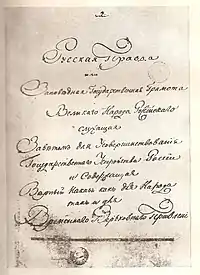 2
Русская Правда
или
Заповѣдная Государственная Грамота
Великаго Народа Россійскаго
служащая
Завѣтомъ для Усовершенствованія
Государственнаго Устройства Россіи
и Содержащая
Вѣрный Наказъ какъ для Народа
такъ и для
Временнаго Верховнаго Правленія